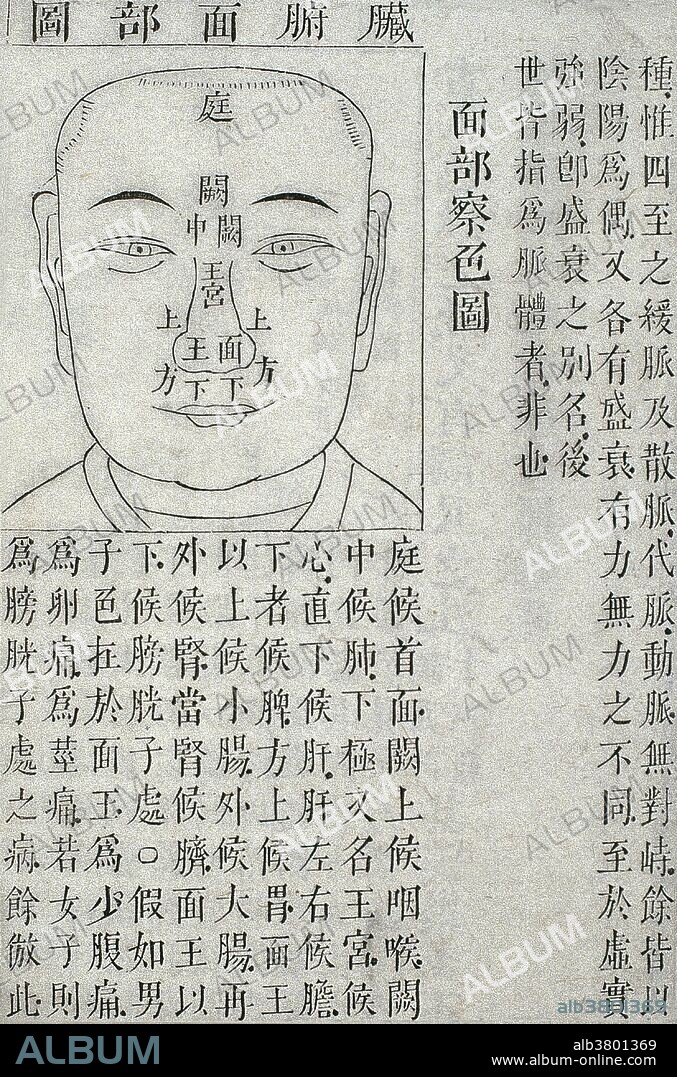 種惟四至之緩脈及散脈代脈動脈無對峙餘皆以
陰陽為偶又各有盛衰有力無力之不同至於虛實
強弱卽盛衰之別名後
世皆指為脈體者非也
面部察色圖
臟腑面部圖
庭
闕
中 闕
王宮
上 上
方 方
面王
下 下
庭候首面闕上候咽喉闕
中候肺下極又名王宮候
心直下候肝肝左右候膽
下者候脾方上候胃面王
以上候小腸外候大腸再
外候腎當腎候臍面王以
下候膀胱子處○假如男
子色在於面王為少腹痛
為卵痛為莖痛若女子則
為膀胱子處之病餘倣此
ALBUM
alb3801369
ALBUM
alb3801369
www.album-online.com